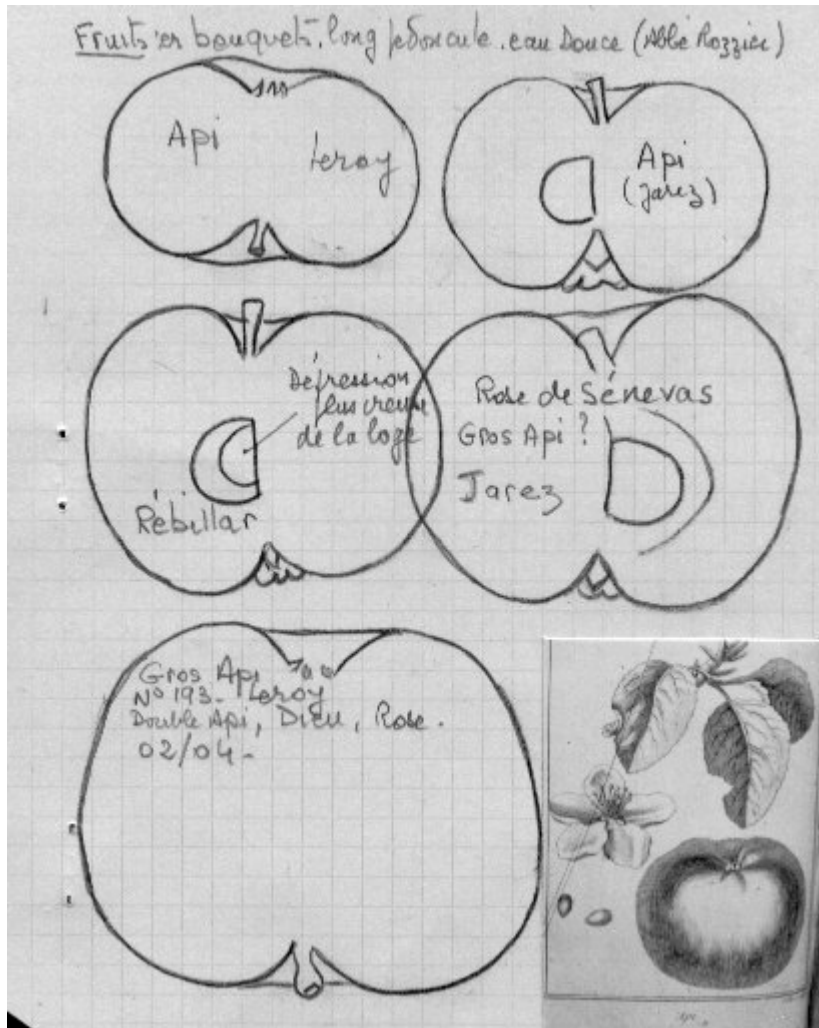 Fruits en bouquets, long pédoncule. eau Douce (Abbé Rozzier)
Api
Leroy
Api
(Jarez)
Dépression
plus creuse
de la loge
Rébillar
Rose de Sénevas
Gros Api ?
Jarez
Gros Api
No 193- Leroy
Double Api, Dieu, Rose.
02/04-